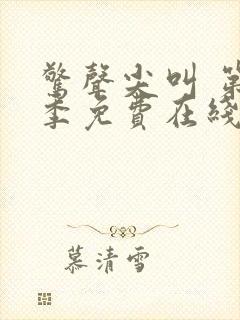 驚聲尖叫 第
季免費在綫
慕清雪